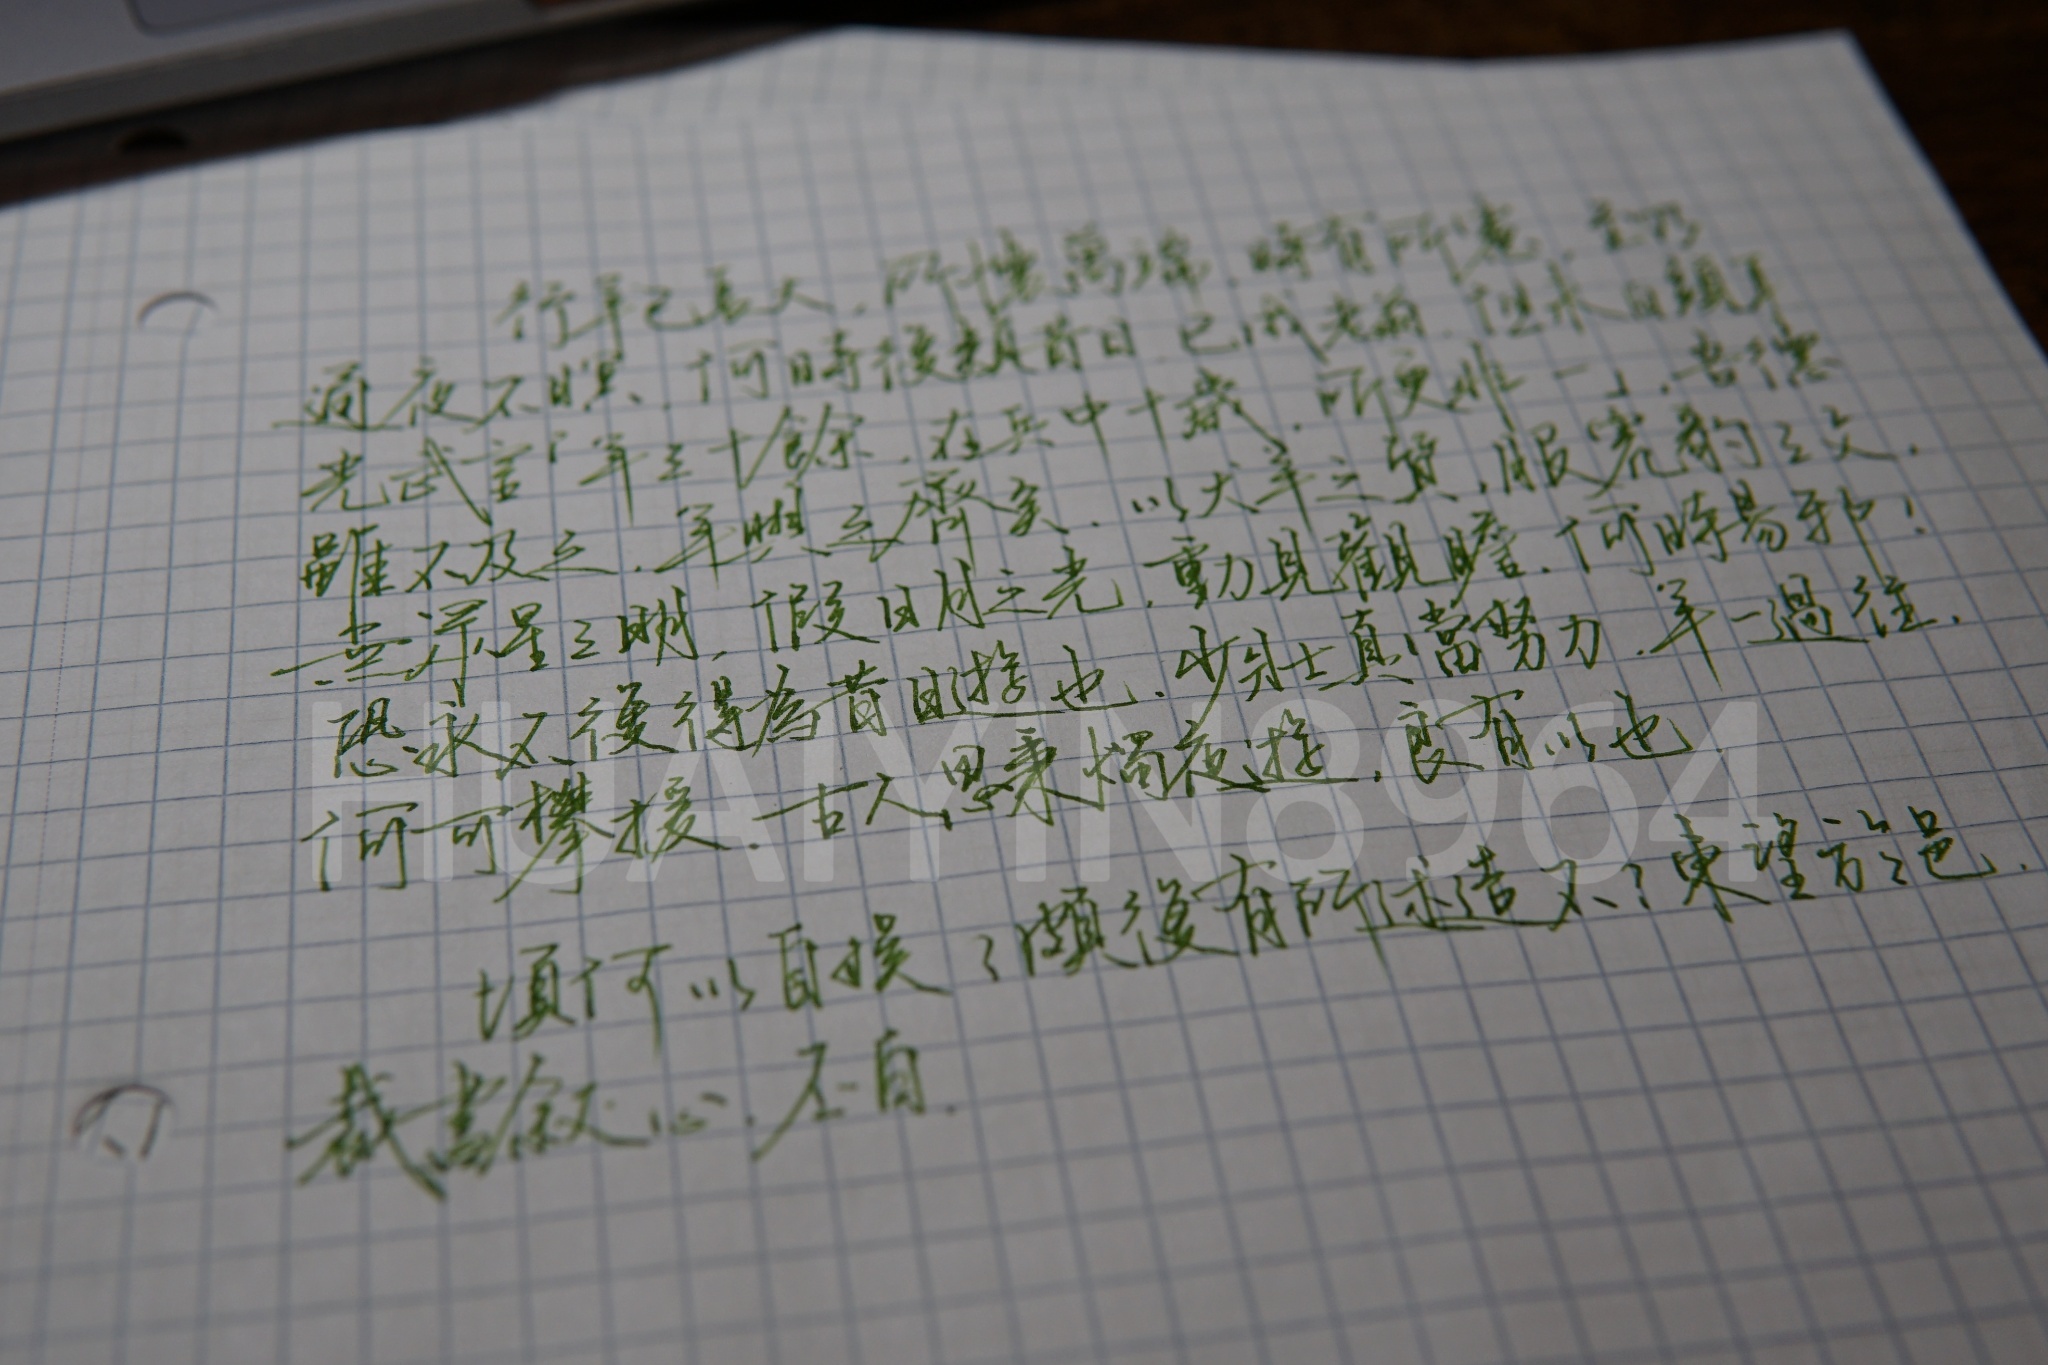 行年已長大，所懷萬端，時有所慮，至乃
通夜不瞑，何時復類昔日，已成老翁，但未白頭耳
光武言「年三十餘，在兵中十歲，所更非一」，吾德
雖不及之，年與之齊矣，以犬羊之質，服虎豹之文，
無眾星之明，假日月之光，動見觀瞻，何時易邪！
恐永不復得為昔日遊也，少壯真當努力，年一過往，
何可攀援，古人思秉燭夜遊，良有以也，
頃何以自娛？頗復有所述造不？東望於邑，
裁書敘心，丕白，
HUAIYIN8964